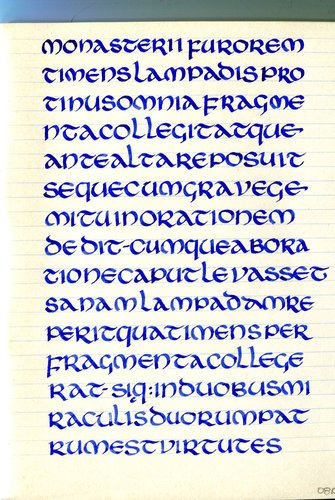 monasterii furorem
timens lampadis pro
tinus omnia fragme
nta collegit atque
ante alta reposuit
seque cum grave ge
mitu in orationem
dedit · cumque ab ora
tione caput levasset
sanam lampadam re
perit qua timens per
fragmenta college
rat · siq: in duobus mi
raculis duorum pat
rum est virtutes